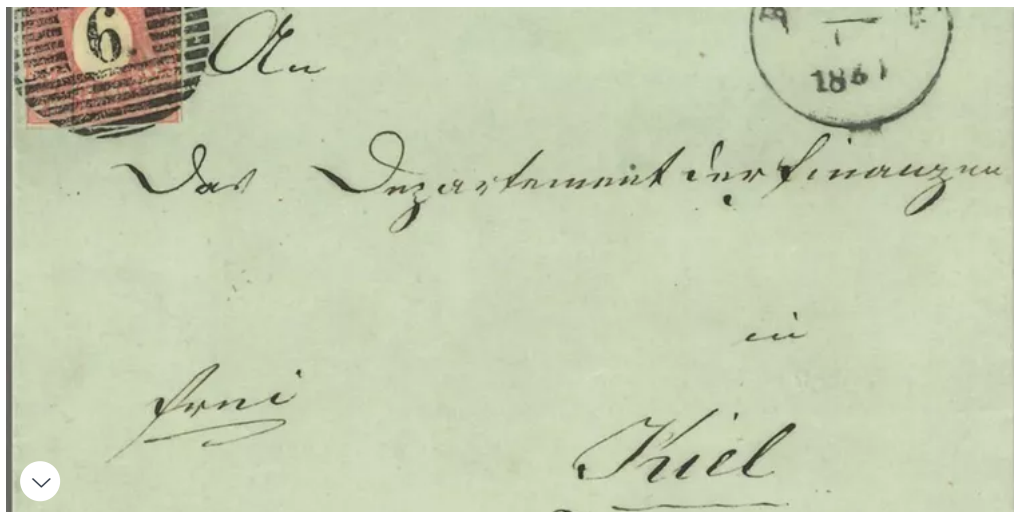 6
An
1851
Das Departement der Finanzen
in
frei
Kiel